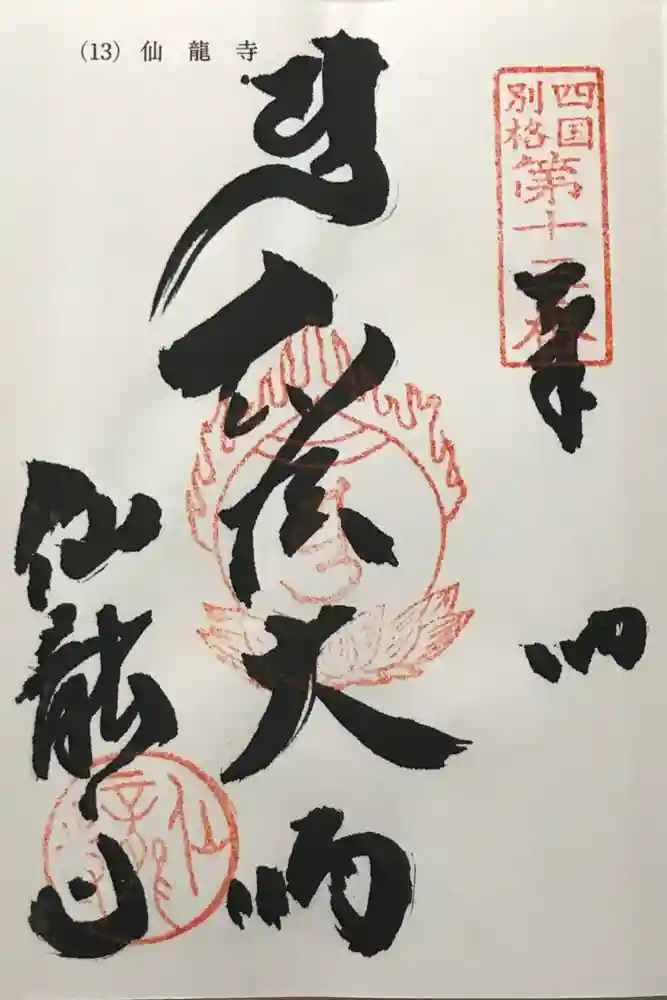 (13) 仙龍寺
四国
別格
第十三
奉納
弘法大師
仙龍寺